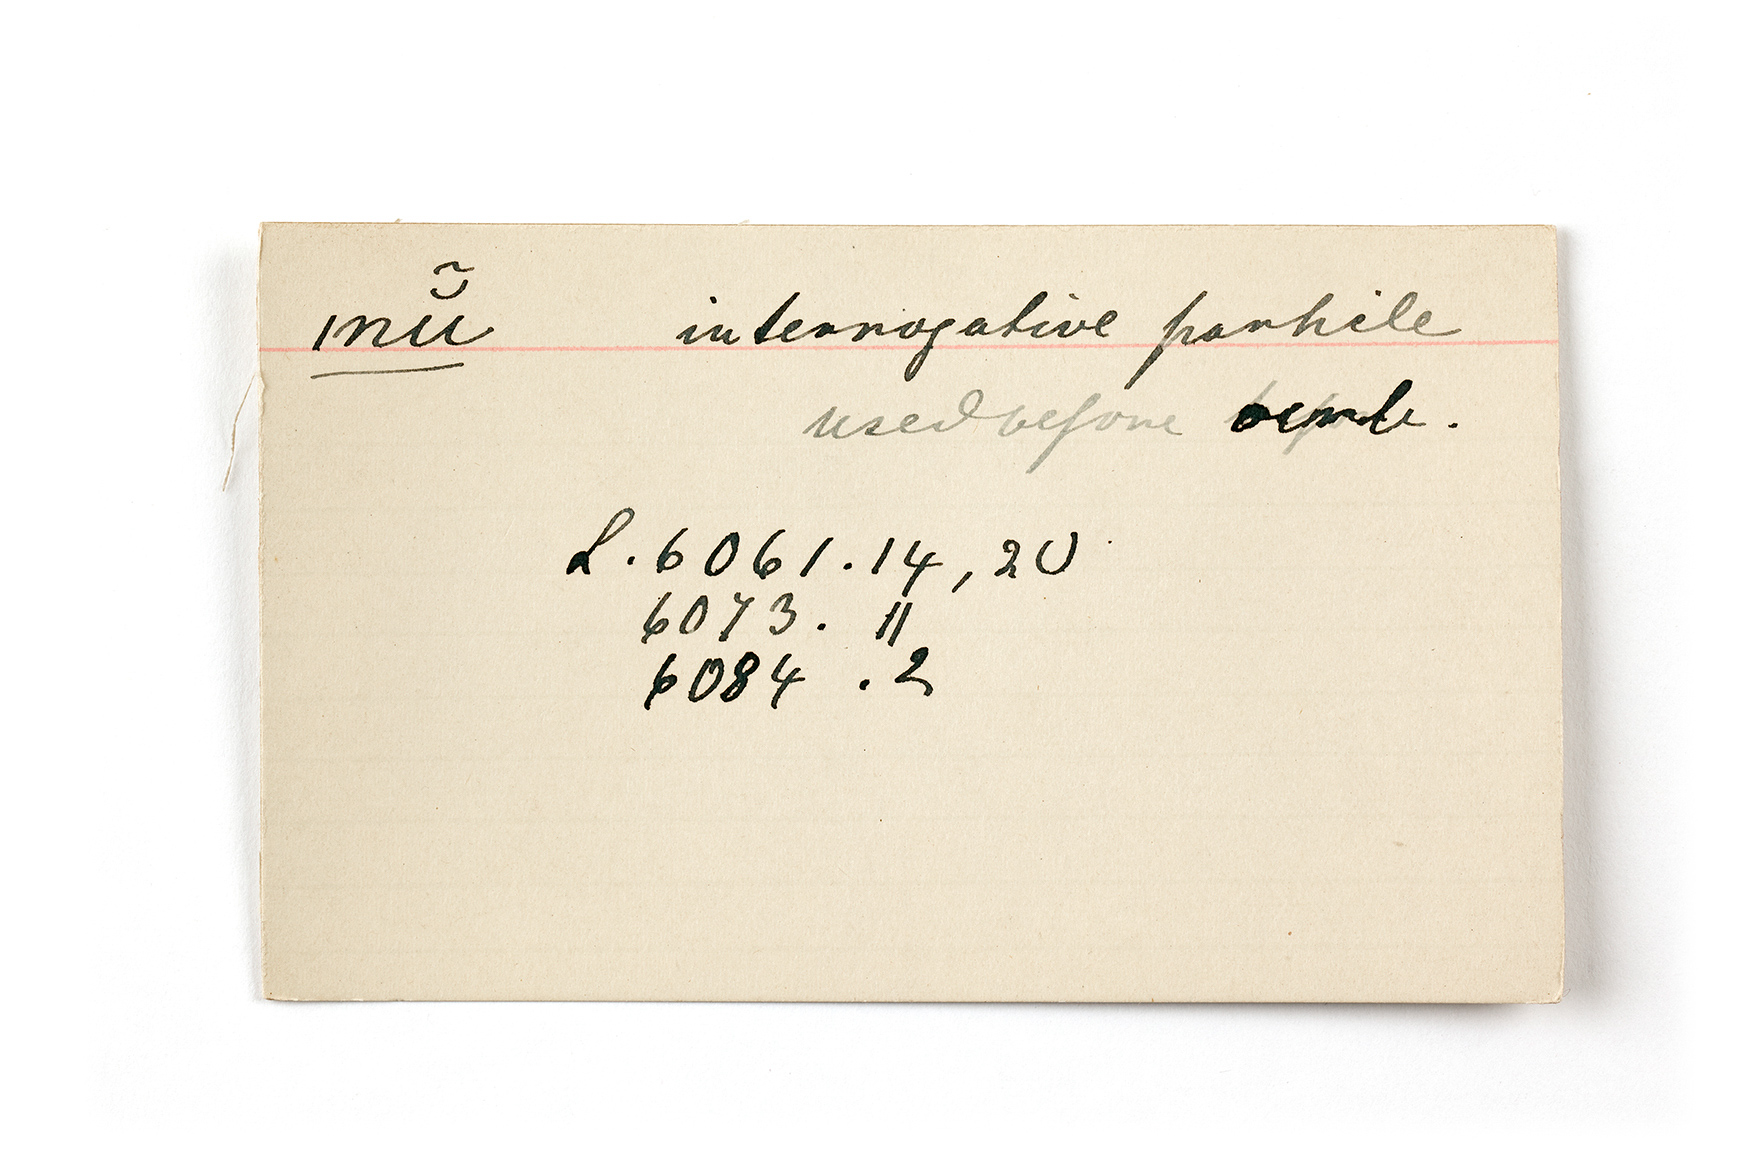 mŭ̃ interrogative particle
used before verb.
L. 6061. 14, 20
6073. 11
6084 . 2